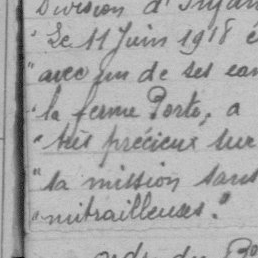 Division d'Infan
" Le 11 Juin 1918 é
" avec un de ses cam
" la ferme Porte, a
" très précieux sur
" sa mission sans
" mitrailleuses."
ordre du